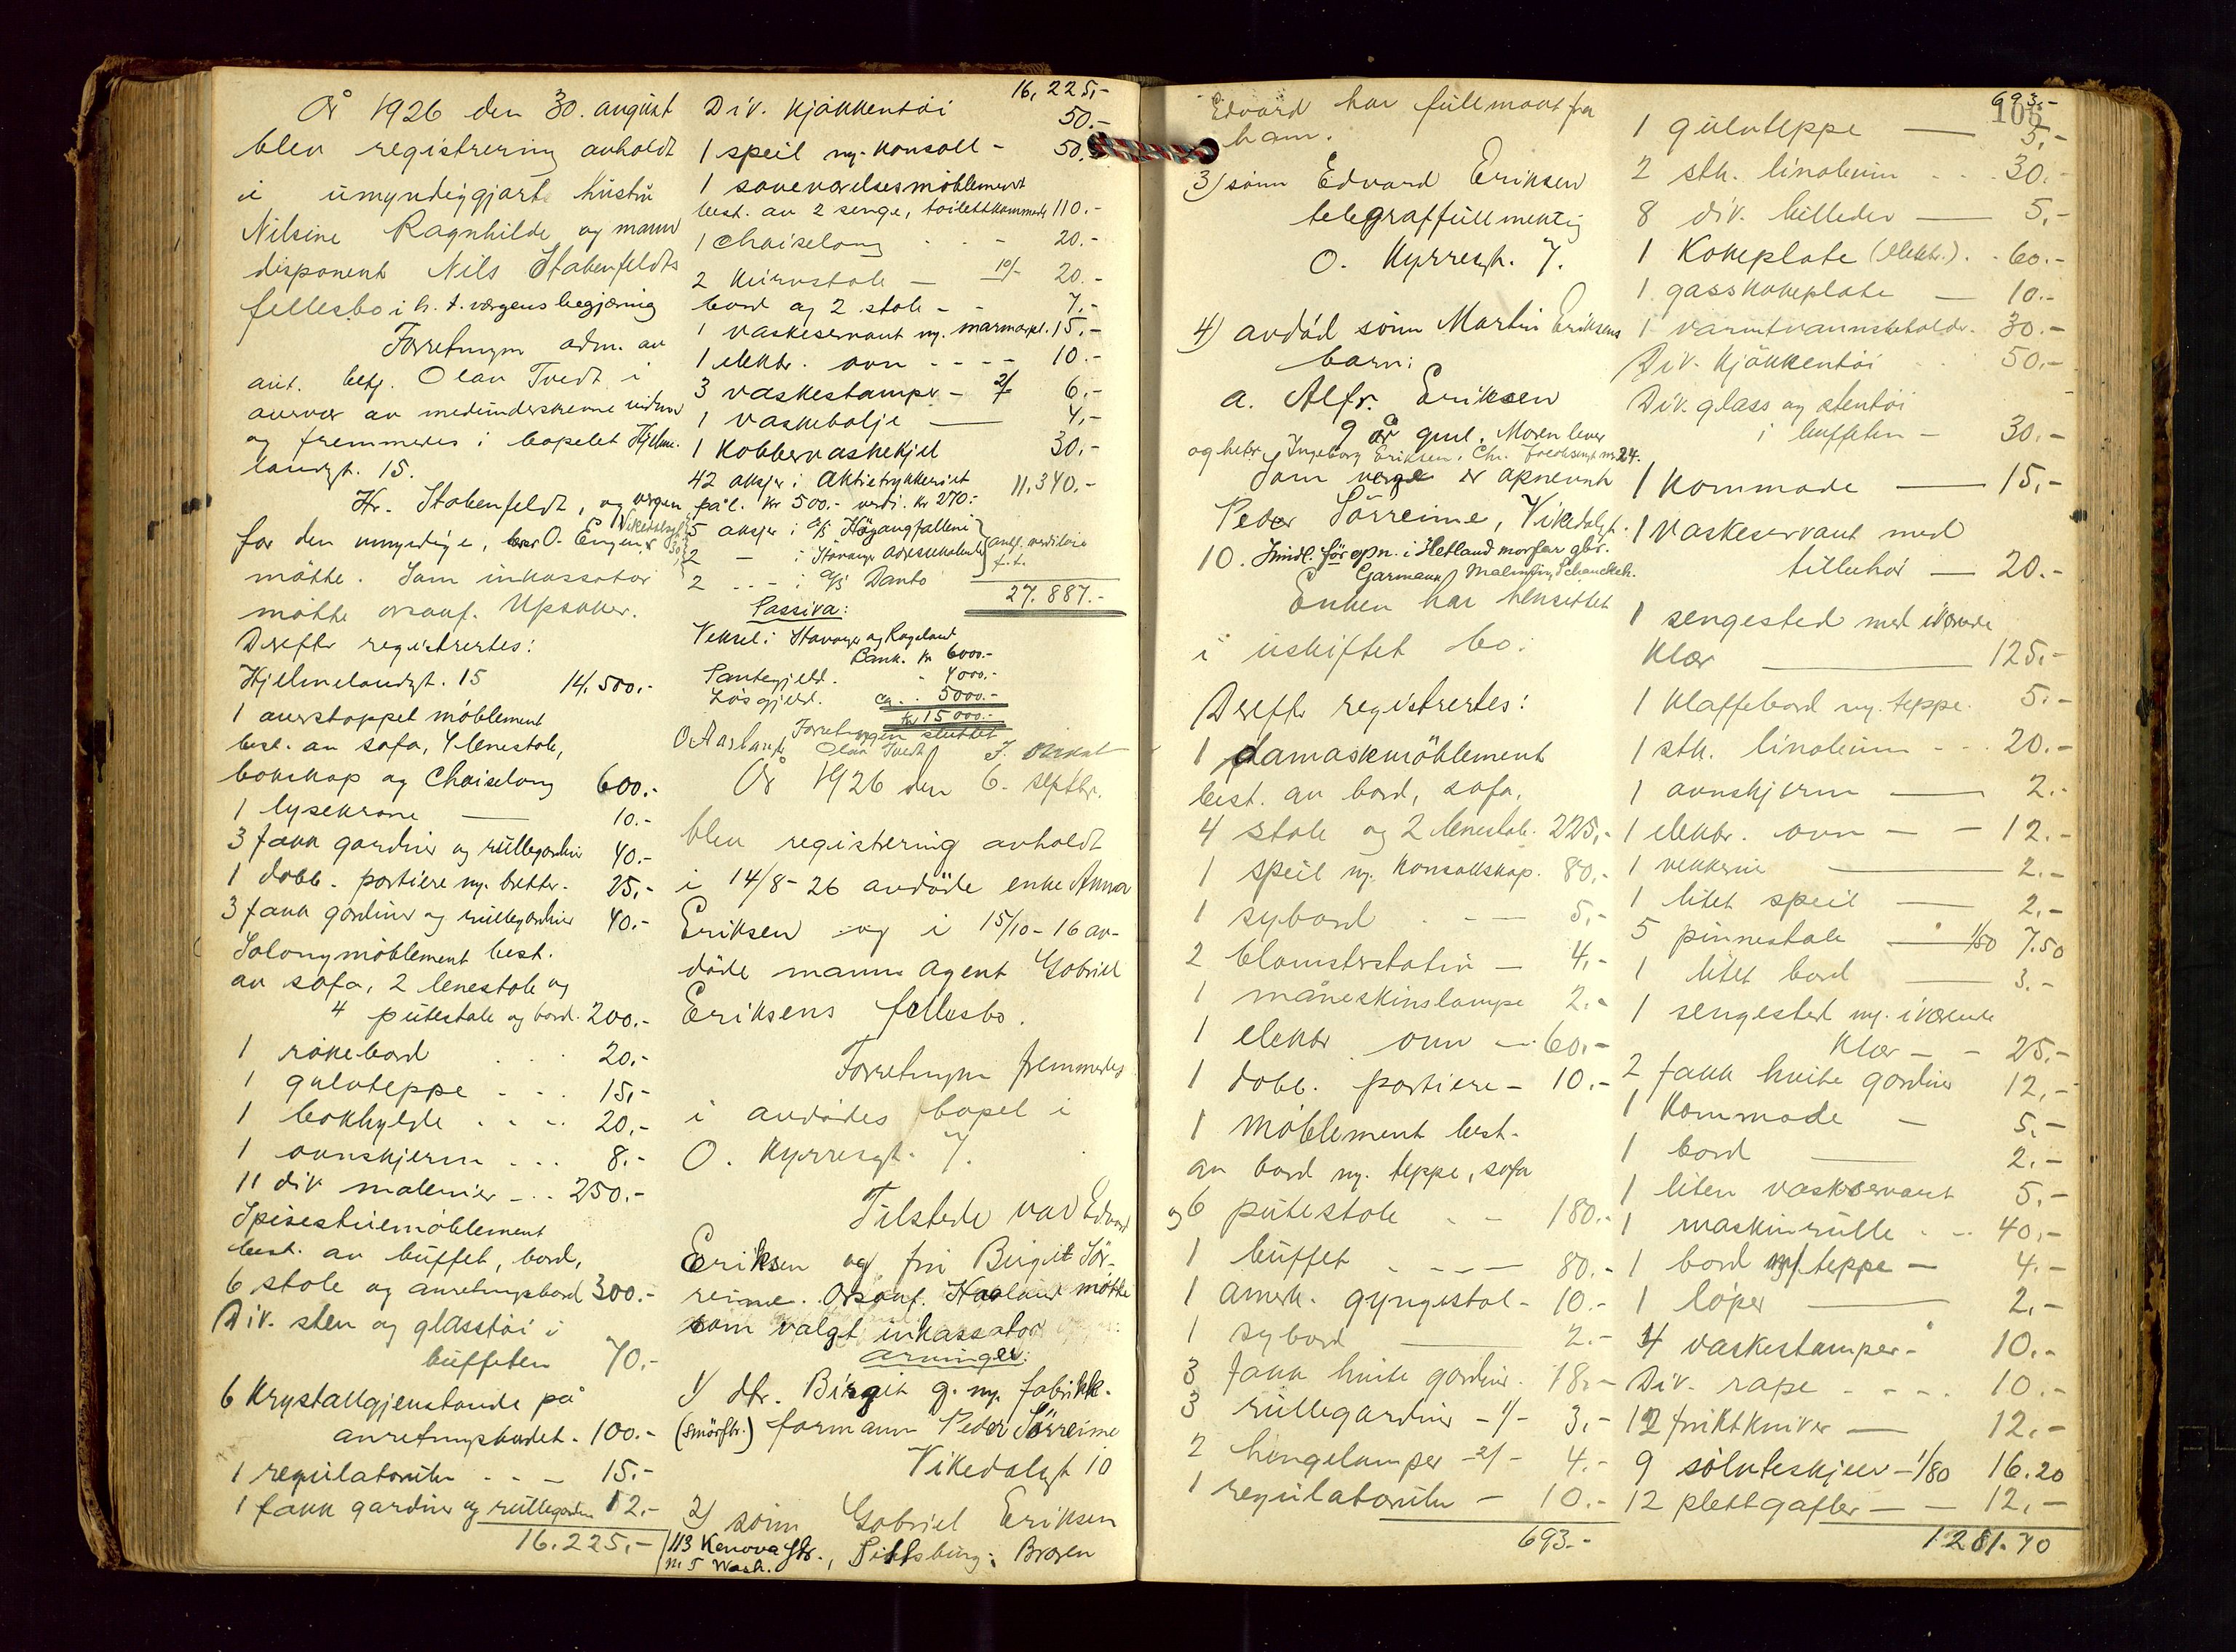 År 1926 den 30. august
blev registrering avholdt
i umyndiggjort hustru
Nilsine Ragnhilde og mann
disponent Nils Stabenfeldts
fellesbo i h. t. vergens begjæring
Forretningen adm. av
aut. betj. Olav Tvedt i
overvær av medunderskrevne vidner
og fremmedes i bopelet Hjelme-
landsgt. 15.
Hr. Stabenfeldt, og vergen
for den umyndige, O. Engen,
møtte. Som inkassator
møtte orsauf. Upsaker.
Derefter registrertes:
Hjelmelandsgt. 15 14.500.-
1 overstoppet møblement
best. av sofa, 4 lenestole,
bokskap og Chaiselong 600.-
1 lysekrone — 10.-
3 fakk gardiner og rullegardiner 40.-
1 dobb. portiere m. bretter. 25,-
3 fakk gardiner og rullegardiner 40.-
Salongmøblement best.
av sofa, 2 lenestole og
4 putestole og bord. 200.-
1 røkebord 20.-
1 gulvteppe - - . 15,-
1 bokhylde . - - . 20,-
1 ovnskjerm . . . 8.-
11 div malerier - . . 250.-
Spisestuemøblement
best. av buffet, bord,
6 stole og anretningsbord 300.-
Div. sten og glasstøi i
buffeten 70.-
6 Krystallgjenstande på
anretningsbordet. 100.-
1 regulatorur . - - 15.-
1 fakk gardiner og rullegardin 12.-
16.225.-
16,225,-
Div. kjøkkentøi 50.-
1 speil m. konsoll - 50.-
1 soveværelsesmøblement
best. av 2 senge, toilettkommode 110.-
1 chaiselong . - - 20.-
2 kurvstole — 10/- 20.-
bord og 2 stole - - 7.-
1 vaskeservant m. marmorpl. 15.-
1 elektr. ovn - - - - 10.-
3 vaskestamper - 2/- 6.-
1 vaskebalje — 4.-
1 Kobbervaskekjel 30.-
42 aksjer i Aktietrykkeriet
pål. kr 500.- verdi. kr 270.- 11.340.-
5 aksjer i A/S Høgangfallene
2 — i Stavanger Adressekalender
2 - - - i A/S Danto
27.887.-
Passiva:
Veksel i Stavanger og Rogaland
Bank. kr 6000.-
Pantegjeld. - 4000.-
Løsgjeld. ca. . 5000.-
kr 15000.-
Forretningen sluttet
O. Aarland Olav Tvedt
År 1926 den 6. septbr.
blev registrering avholdt
i 14/8-26 avdøde enke Anna
Eriksen og i 15/10-16 av-
døde mann Agent Gabriel
Eriksens fellesbo.
Forretningen fremmedes
i avdødes bopel i
O. Kyrresgt. 7.
Tilstede var Edvard
Eriksen og fru Birgit Sør-
reime. Orsauf. Haaland møtte
som valgt inkassator
Arvinger:
1) dtr. Birgit g. m. fabrikk-
(smørfbr.) formann Peder Sørreime
Vikedalsgt 10
2) sønn Gabriel Eriksen
113 Kenova Str., Pittsburg. Broren
m. 5 Wash.
Edvard har fullmakt fra
ham.
3) sønn Edvard Eriksen
telegraffullmektig
O. Kyrresgt. 7.
4) avdød sønn Martin Eriksens
barn:
a. Alfr. Eriksen
9 år gml. Moren lever
og heter Ingeborg Eriksen, Chr. Fredriksgt nr. 24.
Som verge er opnevnt
Peder Sørreime, Vikedalsgt.
10. Imidl. før opn. i Hetland morfar gbr.
Garmann Malmin, Schancheh.
Enken har hensittet
i uskiftet bo.
Derefter registrertes:
1 damaskmøblement
best. av bord, sofa,
4 stole og 2 lenestole. 225,-
1 speil m. konsollskap. 80,-
1 sybord . - — 5,-
2 blomsterstativ — 4,-
1 måneskinslampe 2.-
1 elektr ovn — 60,-
1 dobb. portiere - 10.-
1 Møblement best.
av bord m. teppe, sofa
og 6 putestole . - 180.-
1 buffet . - - — 80.-
1 amerk. gyngestol - 10.-
1 sybord — 2.-
3 fakk hvite gardiner. 18.-
3 rullegardiner - 1/- 3.-
2 hengelamper - 2/- 4.-
1 regulatorur — 10.-
693.-
693.-
106
1 gulvteppe — 5,-
2 stk. linoleum . . . 30.-
8 div. billeder — 5,-
1 Kokeplate (elektr.) . . 60.-
1 gasskokeplate — 10.-
1 varmtvannsbeholder. 30.-
Div. kjøkkentøi . . 50,-
Div. glass og stentøi
i buffeten - 30.-
1 Kommode — 15,-
1 Vaskeservant med
tilbehør — 20.-
1 sengested med iværende
klær — 125,-
1 Klaffebord m. teppe. 5.-
1 stk. linoleum - - . 20.-
1 ovnskjerm — 2.-
1 elektr. ovn — - 12.-
1 vekkerur — 2.-
1 litet speil — 2,-
5 pinnestole — 1/50 7.50
1 litet bord — 3.-
1 sengested m. iværende
klær — - 25.-
2 fakk hvite gardiner 12,-
1 Kommode — 5.-
1 bord — 2.-
1 liten vaskeservant 5.-
1 maskinrulle . . . 40,-
1 bord m/ teppe — 4.-
1 løper — 2,-
4 vaskestamper - 10.-
Div. rape - - - . 10.-
12 fruktkniver — 12.-
9 sølvteskjeer - 1/80 16.20
12 plettgafler — - 12,-
1281.70